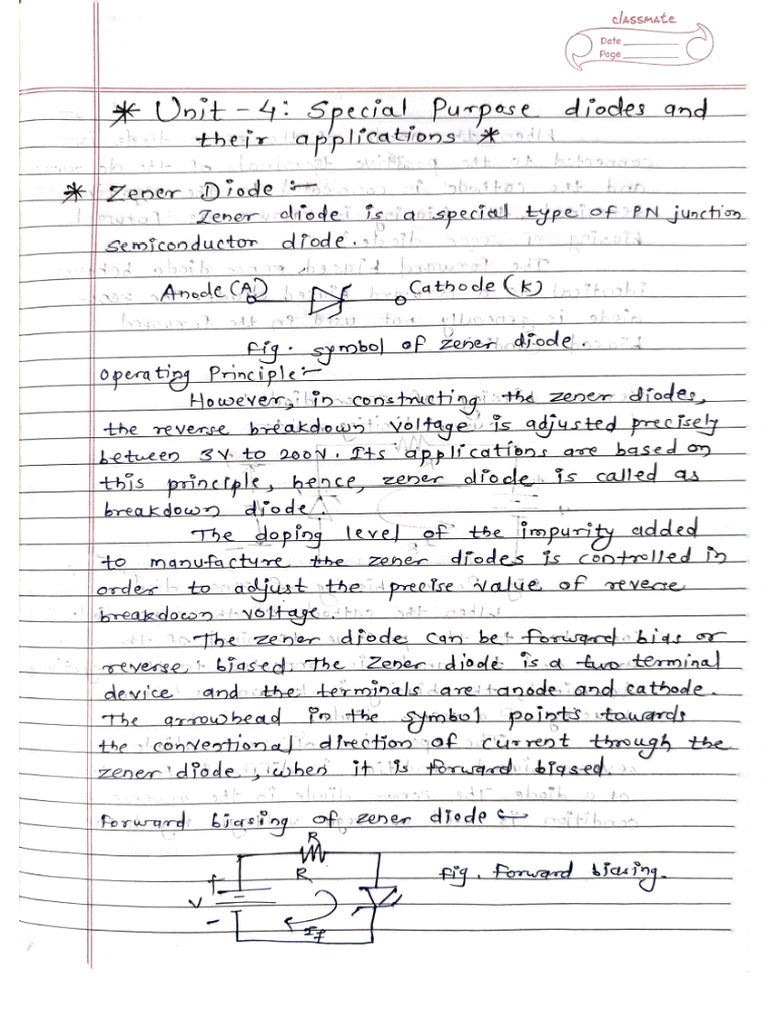 classmate
Date
Page
* Unit - 4: Special Purpose diodes and
their applications *
* Zener Diode :-
Zener diode is a special type of PN junction
semiconductor diode.
Anode (A) Cathode (K)
fig. symbol of zener diode.
operating Principle:-
However, in constructing the zener diodes,
the reverse breakdown voltage is adjusted precisely
between 3V to 200V. Its applications are based on
this principle, hence, zener diode is called as
breakdown diode.
The doping level of the impurity added
to manufacture the zener diodes is controlled in
order to adjust the precise value of reverse
breakdown voltage.
The zener diode can be forward bias or
reverse biased. The Zener diode is a two terminal
device and the terminals are anode and cathode.
The arrowhead in the symbol points towards
the conventional direction of current through the
zener diode, when it is forward biased.
forward biasing of zener diode :-
R
R
fig. forward biasing.
+
V
-
If